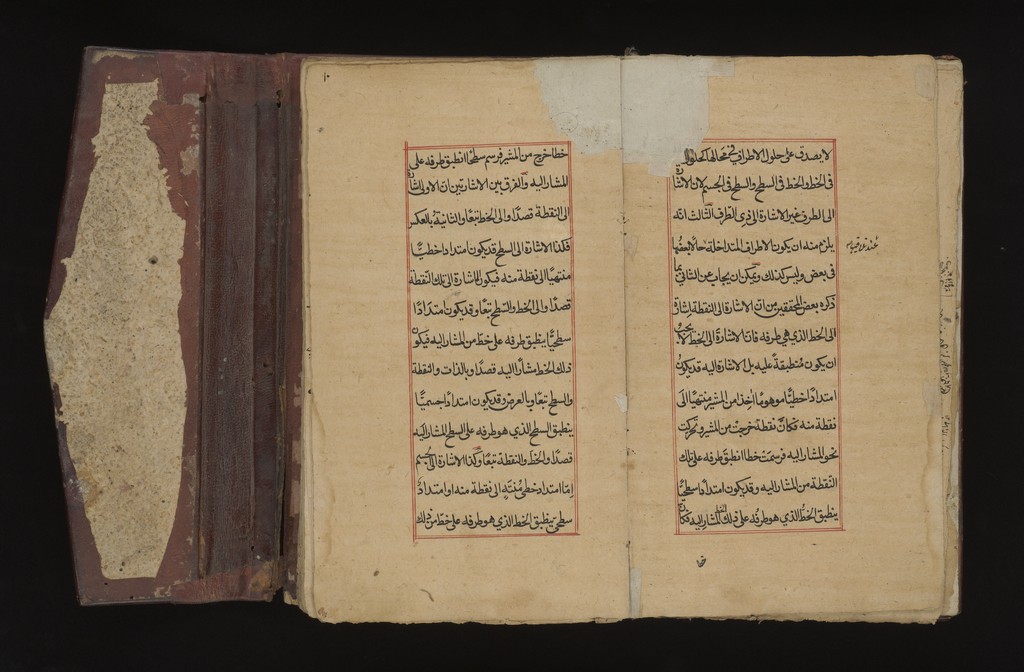 لا يصدق على حلول الاطراف في محالها كحلول
فى الخط والخط فى السطح والسطح فى الجسم لان الاشارة
الى الطرف غير الاشارة الى ذى الطرف الثالث انه
يلزم منه ان يكون الاطراف المتداخلة حالا بعضها
فى بعض وليس كذلك ويمكن ان يجاب عن الثانى بما
ذكره بعض المحققين من ان الاشارة الى النقطة اشارة
الى الخط الذى هى طرفه فان الاشارة الى الخط لا يجب
ان يكون منطبقة عليه بل الاشارة اليه قد يكون
امتدادا خطيا موهوما اخذا من المشير منتهيا الى
نقطة منه فكان نقطة خرجت من المشير وتحركت
نحو المشار اليه فرسمت خطا انطبق طرفه على تلك
النقطة من المشار اليه وقد يكون امتدادا سطحيا
ينطبق الخط الذى هو طرفه على ذلك الخط المشار اليه فكان
خطا خرج من المشير فرسم سطحا انطبق طرفه على
المشار اليه والفرق بين الاشارتين ان الاولى اشارة
الى النقطة قصدا والى الخط تبعا والثانية بالعكس
فكذا الاشارة الى السطح قد يكون امتدادا خطيا
منتهيا الى نقطة منه فيكون الاشارة الى تلك النقطة
قصدا والى الخط والسطح تبعا وقد يكون امتدادا
سطحيا ينطبق طرفه على خط من المشار اليه فيكون
ذلك الخط مشارا اليه قصدا وبالذات والنقطة
والسطح تبعا وبالعرض وقد يكون امتدادا جسميا
ينطبق السطح الذى هو طرفه على السطح المشار اليه
قصدا والخط والنقطة تبعا وكذا الاشارة الى الجسم
اما امتداد خطى منته الى نقطة منه او امتداد
سطحى ينطبق الخط الذى هو طرفه على خط من ذلك